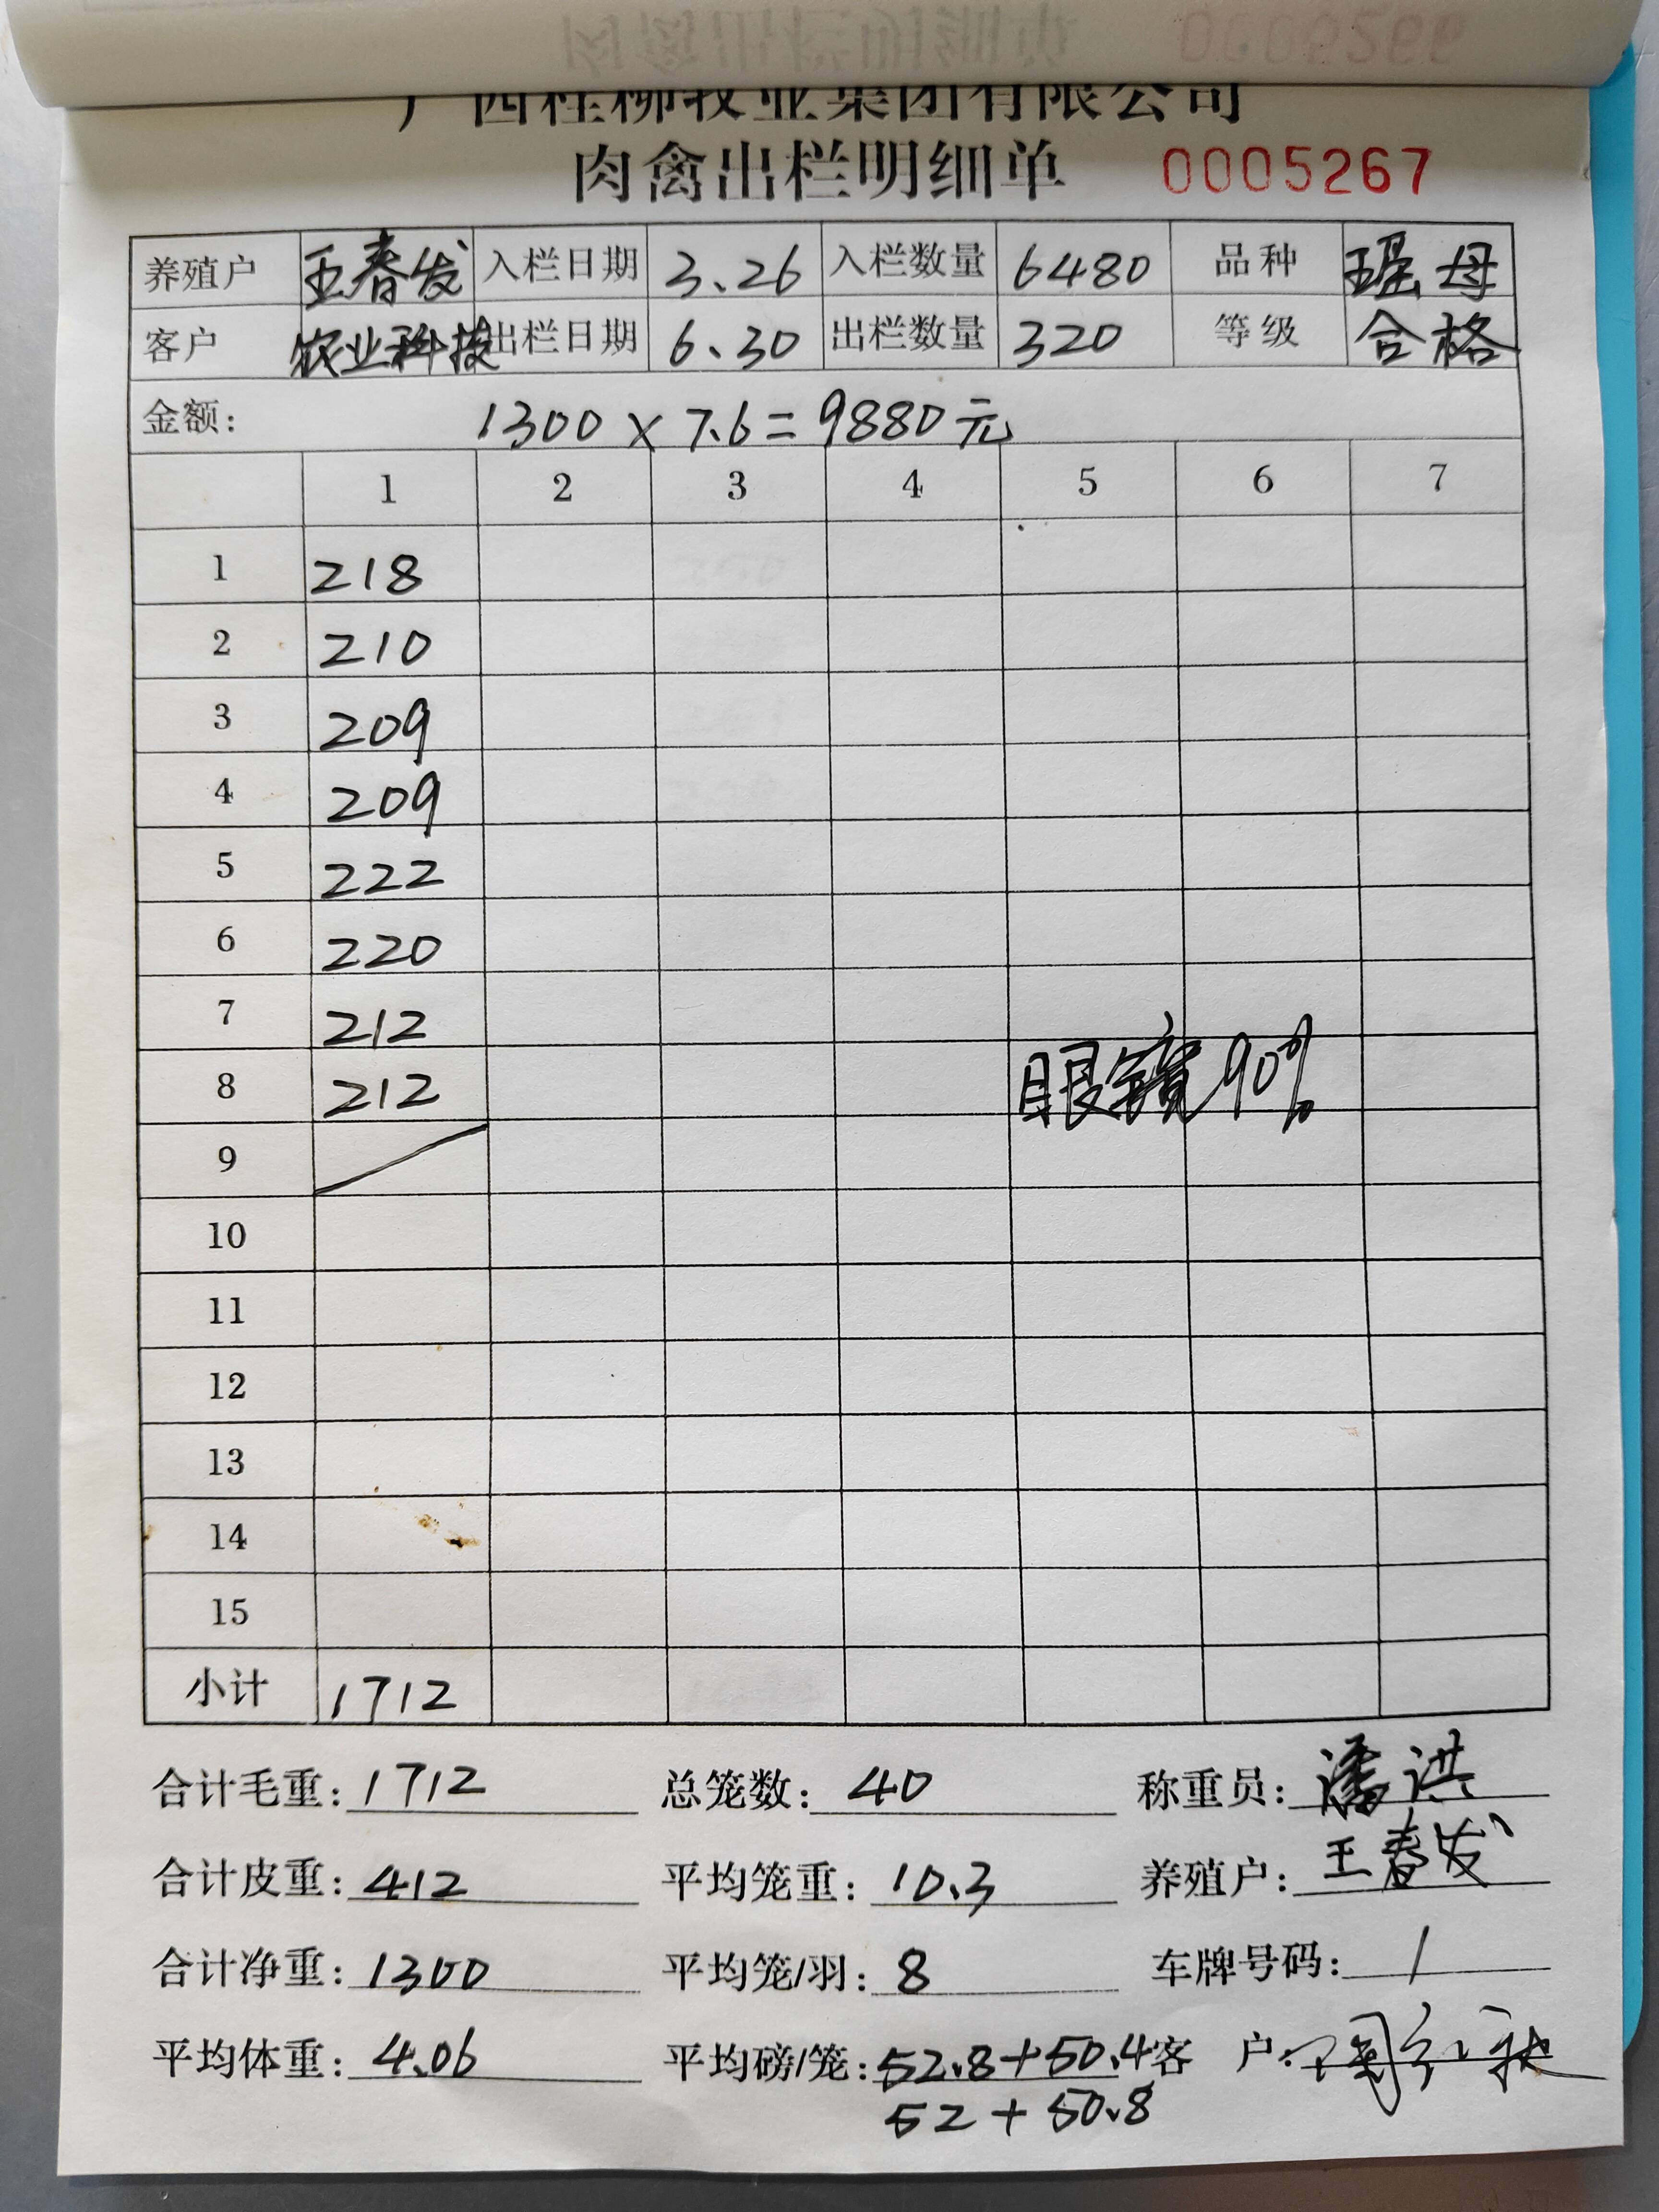 广西桂柳牧业集团有限公司
肉禽出栏明细单 0005267
养殖户 王春发 入栏日期 3.26 入栏数量 6480 品种 瑶母
客户 农业科技 出栏日期 6.30 出栏数量 320 等级 合格
金额: 1300×7.6=9880元
1 2 3 4 5 6 7
1 218
2 210
3 209
4 209
5 222
6 220
7 212
8 212 眼镜90%
9
10
11
12
13
14
15
小计 1712
合计毛重: 1712 总笼数: 40 称重员: 潘洪
合计皮重: 412 平均笼重: 10.3 养殖户: 王春发
合计净重: 1300 平均笼/羽: 8 车牌号码: /
平均体重: 4.06 平均磅/笼: 52.8+50.4 客户:
52+50.8